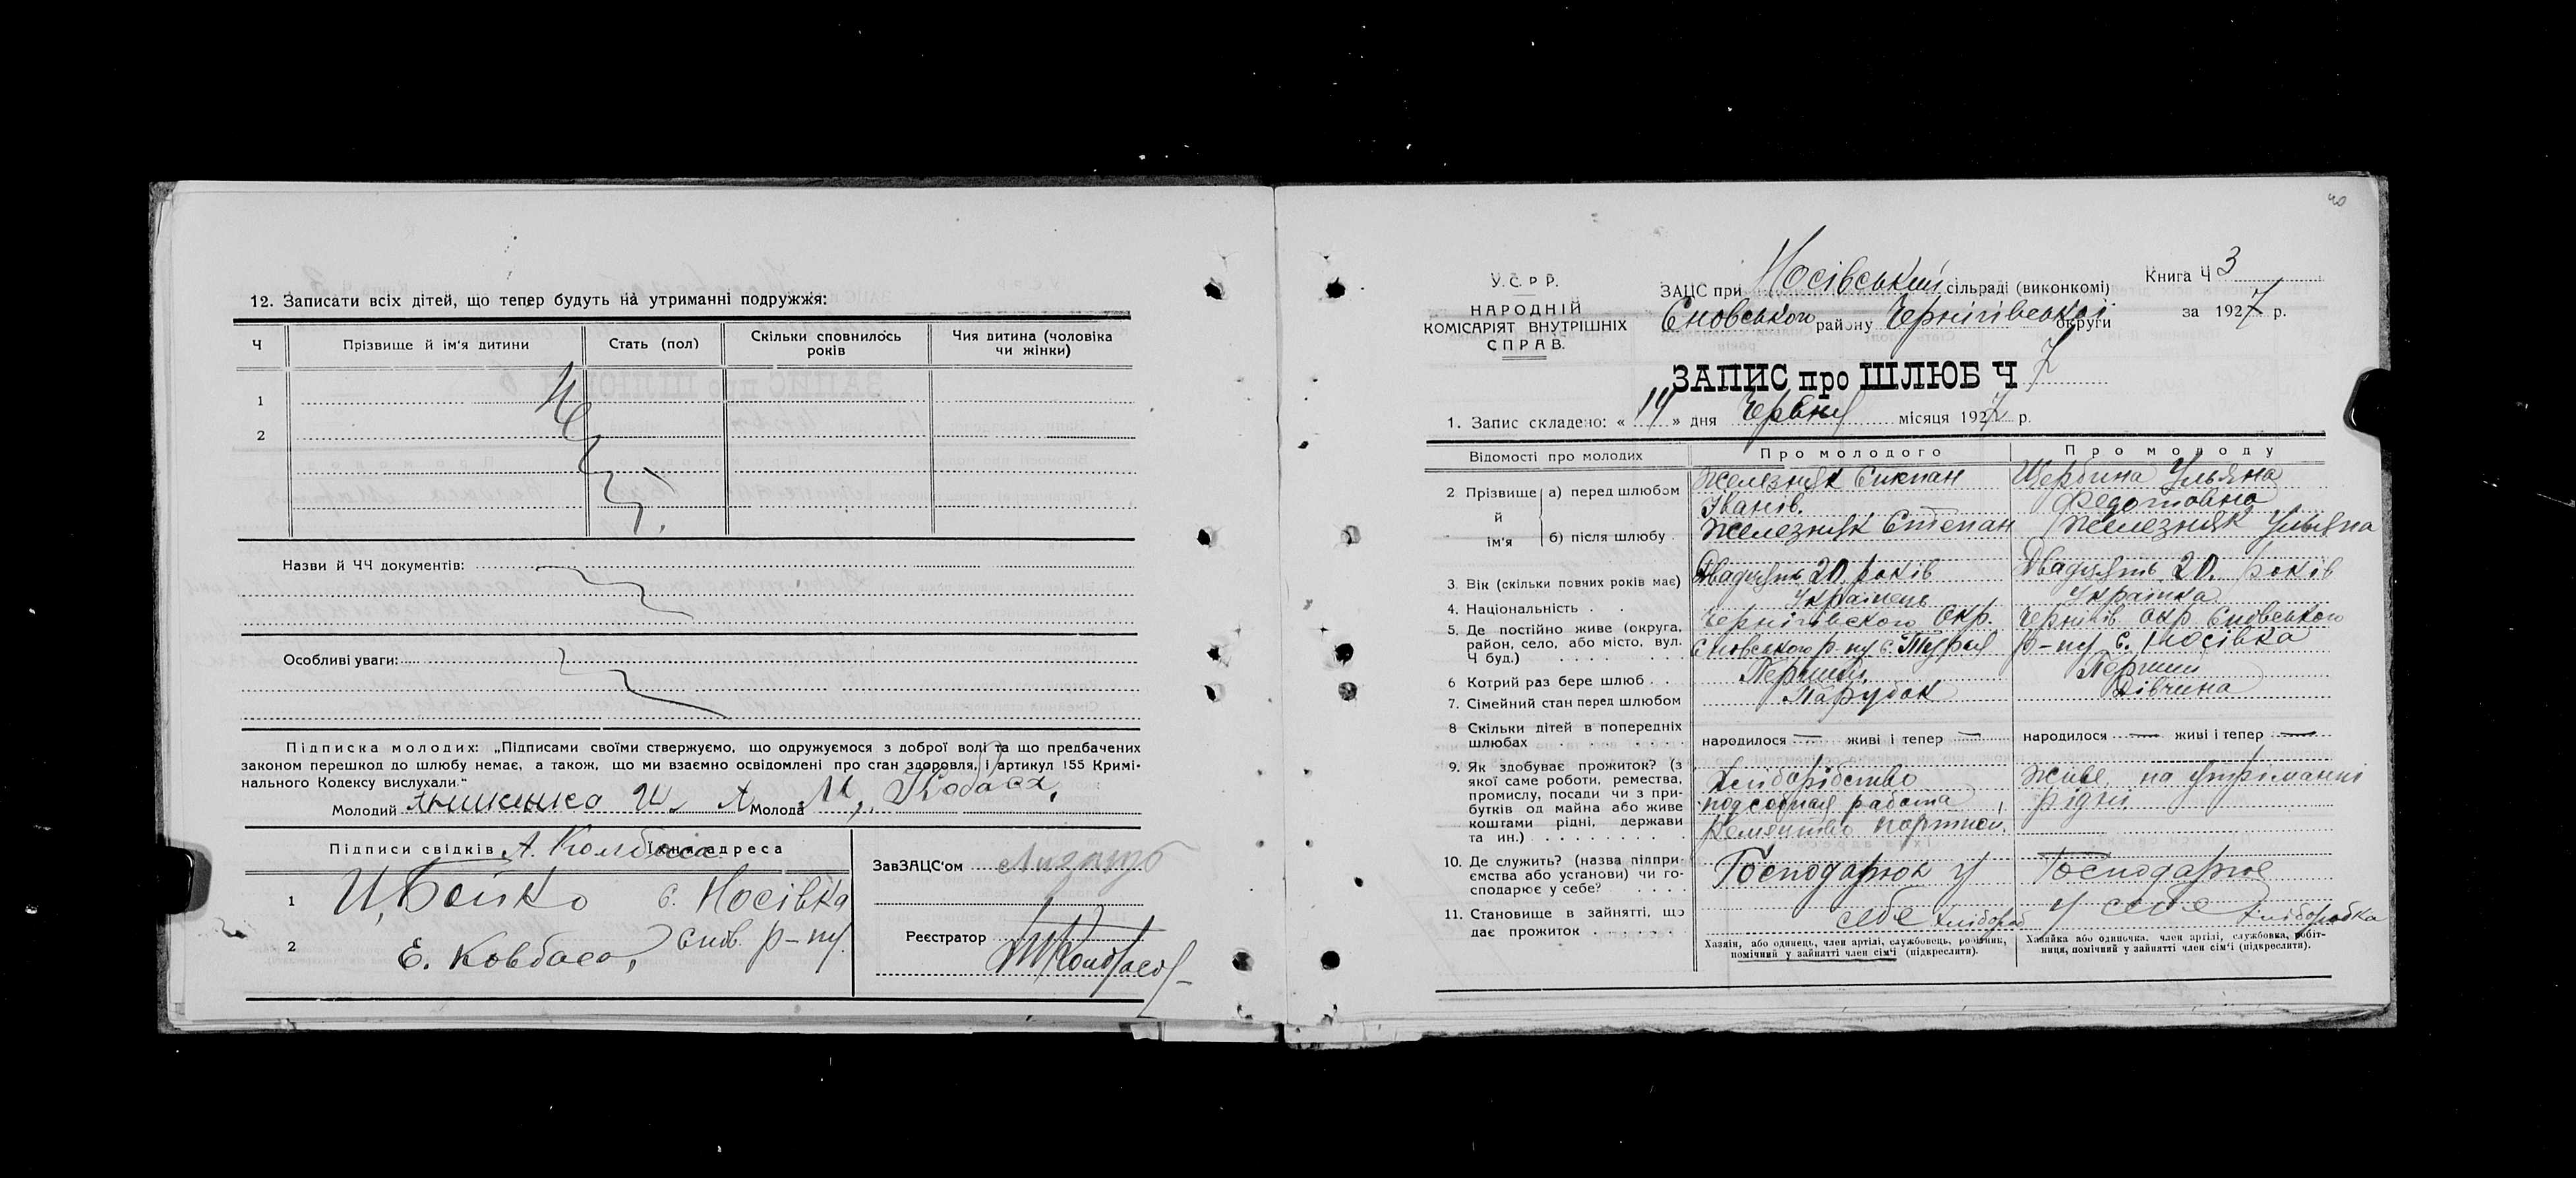 12. Записати всіх дітей, що тепер будуть на утриманні подружжя:
Ч Прізвище й ім'я дитини Стать (пол) Скільки сповнилось років Чия дитина (чоловіка чи жінки)
1
2
Назви й ЧЧ документів:
Особливі уваги:
Підписка молодих: „Підписами своїми стверджуємо, що одружуємося з доброї волі та що предбачених
законом перешкод до шлюбу немає, а також, що ми взаємно освідомлені про стан здоровля, і артикул 155 Кримі-
нального Кодексу вислухали."
Молодий Молода М. Кобаса
Підписи свідків А. Колбаса Їхня адреса
1 И, Бойко с. Носівка
2 Е. Ковбаса, Снов. р-ну.
ЗавЗАЦС'ом
Реєстратор
40
У.С.Р.Р.
НАРОДНІЙ
КОМІСАРІЯТ ВНУТРІШНІХ
СПРАВ.
ЗАЦС при Носівській сільраді (виконкомі)
Сновського району Чернігівської округи
Книга Ч 3
за 1927 р.
ЗАПИС про ШЛЮБ Ч 7
1. Запис складено: « 14 » дня Червня місяця 1927 р.
Відомості про молодих Про молодого Про молоду
2 Прізвище й ім'я а) перед шлюбом Железняк Степан Іванів. Щербина Ульяна Федотовна
б) після шлюбу Железняк Степан Железняк Ульяна
3. Вік (скільки повних років має) Двадцять 20 років Двадцять 20. років
4. Національність . . Українець Українка
5. Де постійно живе (округа, район, село, або місто, вул. Ч буд.) Чернігівского Окр. Сновського р-ну с. Турья Чернігів. окр Сновського р-ну с. Носівка
6 Котрий раз бере шлюб . . Перший. Перший
7. Сімейний стан перед шлюбом Парубок Дівчина
8 Скільки дітей в попередніх шлюбах народилося — живі і тепер — народилося — живі і тепер —
9. Як здобуває прожиток? (з якої саме роботи, ремества, промислу, посади чи з прибутків од майна або живе коштами рідні, держави та ин.) Хліборобство подсобная работа, Ремество портной. Живе на утріманні рідні.
10. Де служить? (назва підприємства або установи) чи господарює у себе? Господарює у себе Господарює у себе
11. Становище в зайнятті, що дає прожиток хлібороб хліборобка
Хазяїн, або одинець, член артілі, службовець, робітник, помічний у зайнятті член сім'ї (підкреслити).
Хазяйка або одиначка, член артілі, службовка, робітниця, помічний у зайнятті член сім'ї (підкреслити).